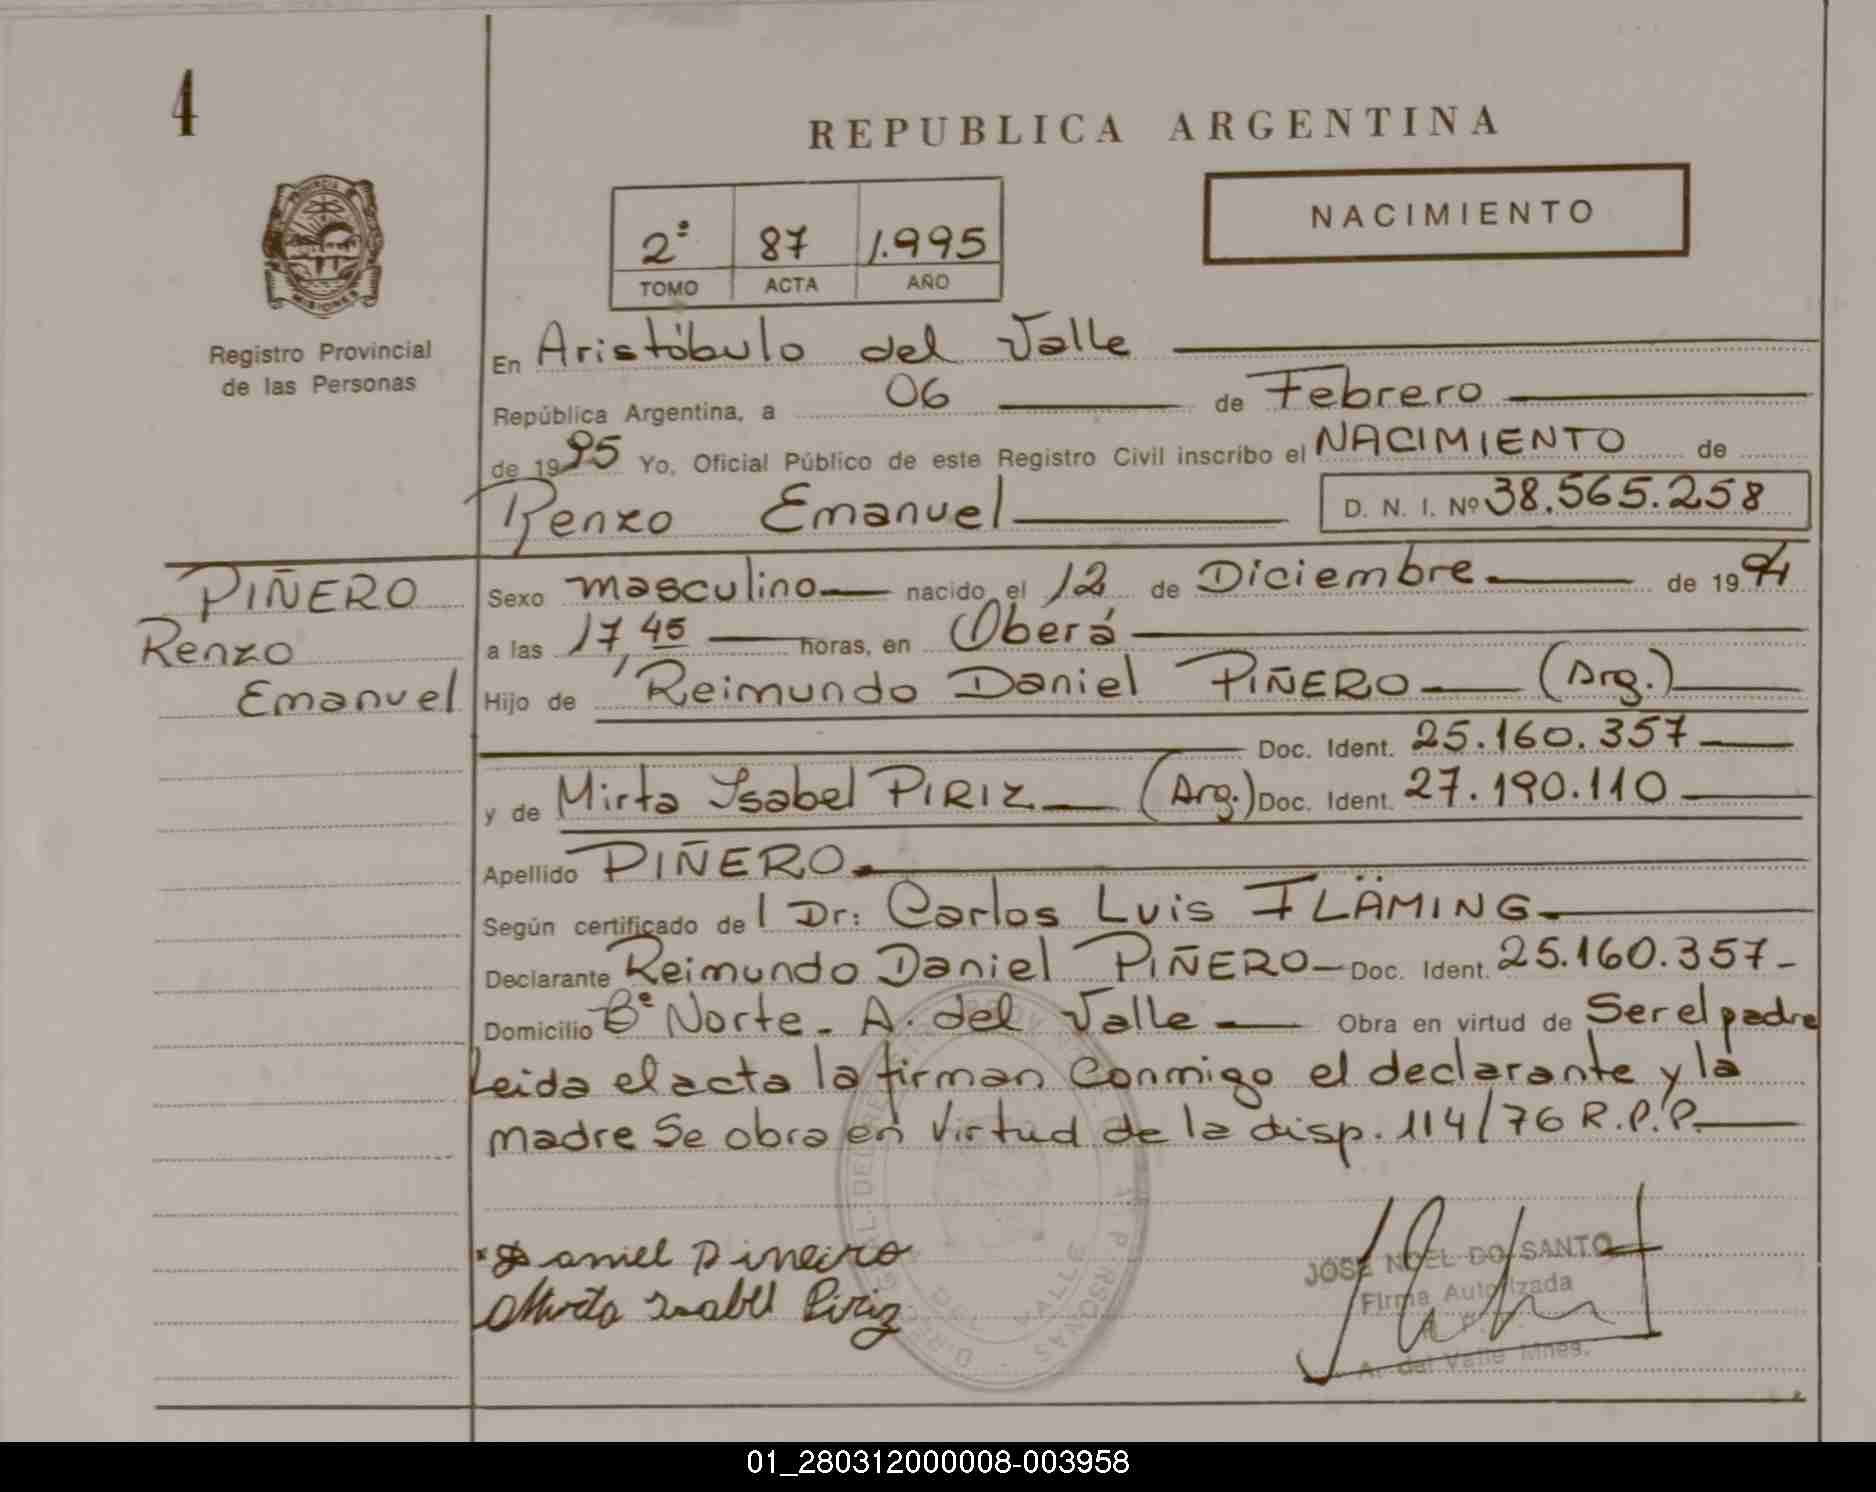 4
REPUBLICA ARGENTINA
NACIMIENTO
2º 87 1.995
TOMO ACTA AÑO
PROVINCIA
MISIONES
Registro Provincial
de las Personas
En Aristóbulo del Valle
República Argentina, a 06 de Febrero
de 1995 Yo, Oficial Público de este Registro Civil inscribo el NACIMIENTO de
Renzo Emanuel D. N. I. Nº 38.565.258
PIÑERO
Renzo
Emanuel
Sexo masculino nacido el 12 de Diciembre de 1994
a las 17,45 horas, en Oberá
Hijo de Reimundo Daniel PIÑERO (Arg.)
Doc. Ident. 25.160.357
y de Mirta Ysabel PIRIZ (Arg.) Doc. Ident. 27.190.110
Apellido PIÑERO
Según certificado de l Dr: Carlos Luis FLÄMING
Declarante Reimundo Daniel PIÑERO Doc. Ident. 25.160.357
Domicilio Bº Norte - A. del Valle Obra en virtud de Ser el padre
Leida el acta la firman Conmigo el declarante y la
madre Se obra en Virtud de la disp. 114/76 R.P.P.
Daniel Pineiro
Mirta Isabel Piriz
JOSE NOEL DO SANTO
Firma Autorizada
A. del Valle Mnes.
01_280312000008-003958